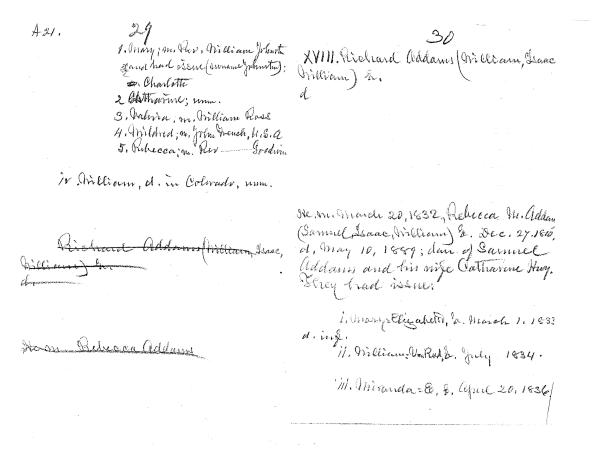 A 21.
29
1. Mary; m. Rev. William Johnston
and had issue (surname Johnston):
a. Charlotte
2 Catharine; unm.
3. Valeria, m. William Ross
4. Mildred; m. John French, U.S.A
5. Rebecca; m. Rev —— Goodwin
iv William, d. in Colorado, unm.
Richard Addams (William, Isaac,
William) b.
d.
He m. Rebecca Addams
30
XVIII. Richard Addams (William, Isaac
William) b.
d
He m. March 20, 1832, Rebecca M. Addams
(Samuel, Isaac, William) b. Dec. 27,
d. May 10, 1889; dau of Samuel
Addams and his wife Catharine Huy.
They had issue:
i. Mary Elizabeth, b. March 1. 1833
d. inf.
ii. William b. July 1834.
iii. Miranda E, b. April 20, 1836